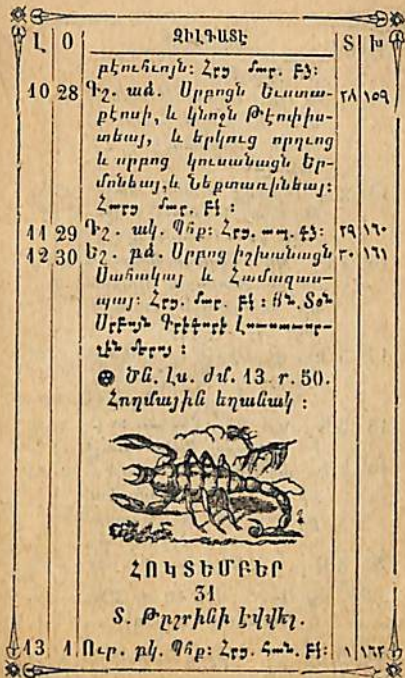 Լ Օ ԶԻԼԳԱՏԷ Տ Խ
բէուհւոյն: Հրց մար. բկ:
10 28 Գշ. ած. Սրբոցն Եւստա- ՐԱ ՃԾԹ
քէոսի, և կնոջն Թէոփիս-
տեայ, և երկուց որդւոց
և սրբոց կուսանացն Եր-
մոնեայ, և Նեքտառինեայ:
Հարց մար. բկ :
11 29 Դշ. ակ. Պհք: Հրց. առ. գկ: ՃԿ
12 30 Եշ. բձ. Սրբոց իշխանացն ՃԿԱ
Սահակայ և Համազաս-
պայ: Հրց. մար. բկ : Տօն
Սրբոյն Գրիգորի Լուսաւոր-
չին մերոյ :
Ծն. Լս. ժմ. 13. ր. 50.
Հողմային եղանակ :
ՀՈԿՏԵՄԲԵՐ
31
Տ. Թըշրինի էվվել.
13 1 Ուր. բկ. Պհք: Հրց. համ. բկ: